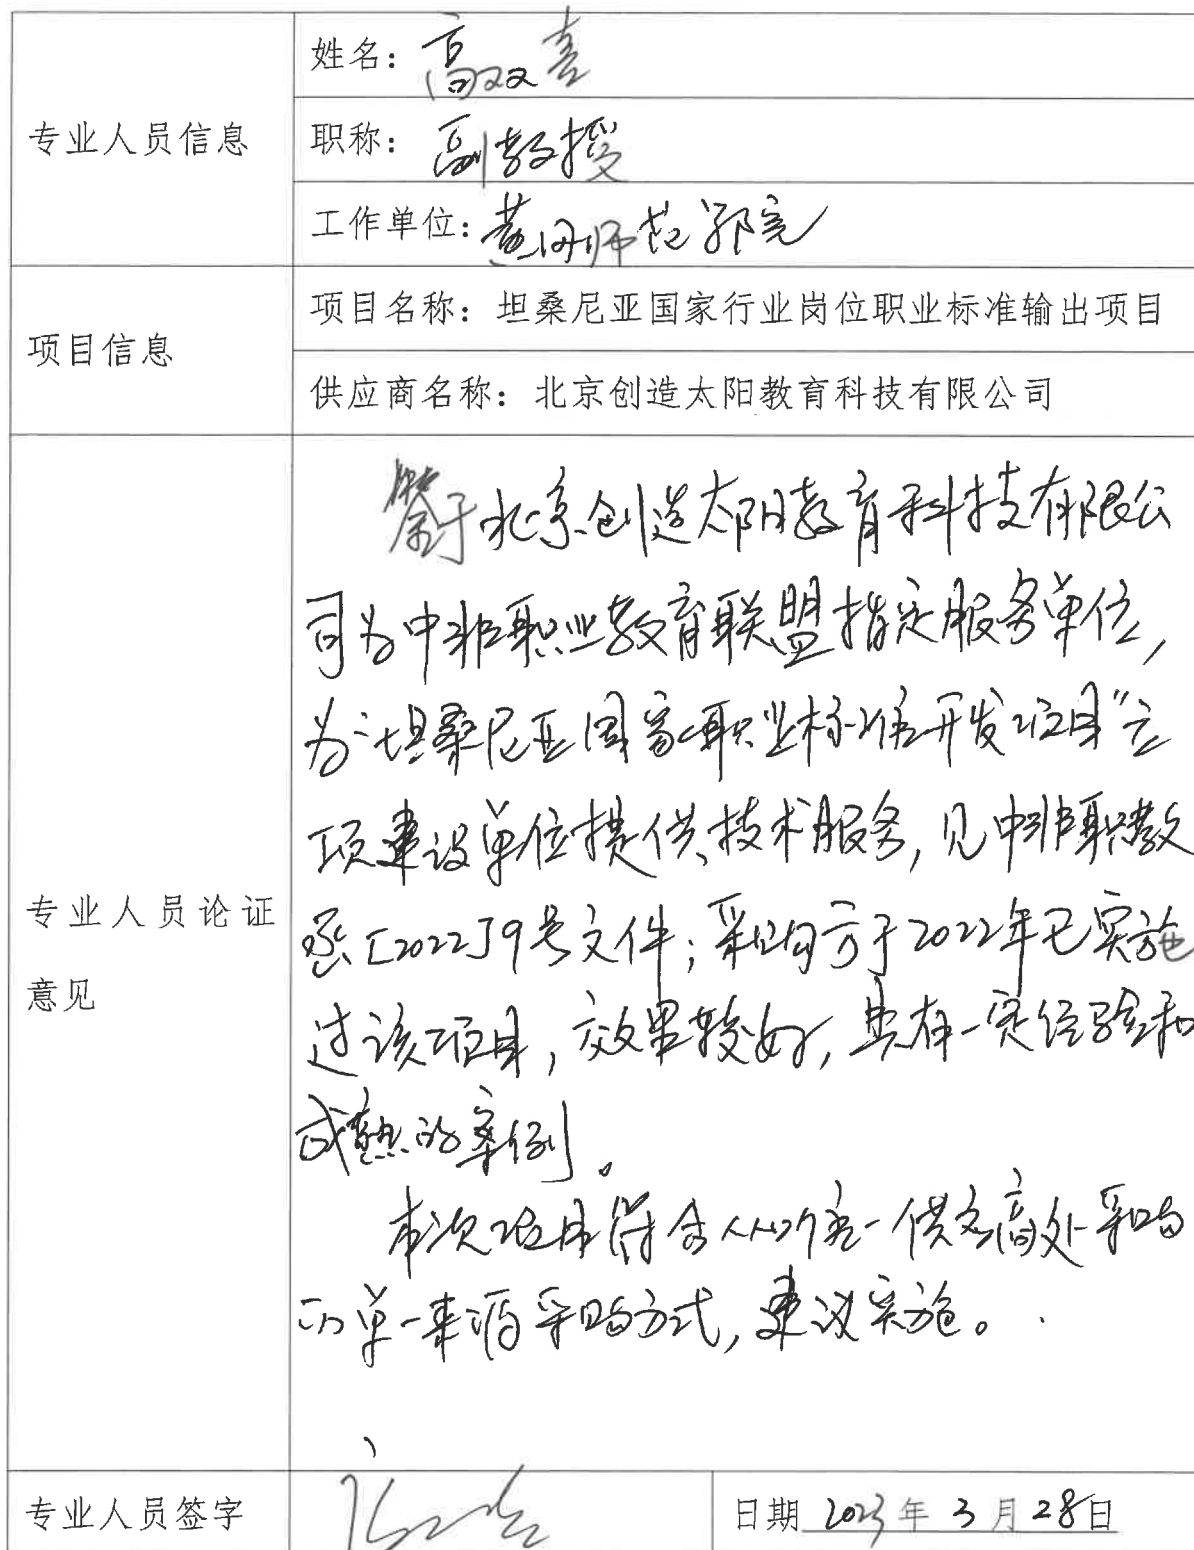 专业人员信息
姓名：高双喜
职称：副教授
工作单位：黄冈师范学院
项目信息
项目名称：坦桑尼亚国家行业岗位职业标准输出项目
供应商名称：北京创造太阳教育科技有限公司
专业人员论证
意见
鉴于北京创造太阳教育科技有限公
司为中非职业教育联盟指定服务单位，
为“坦桑尼亚国家职业标准开发项目”立
项建设单位提供技术服务，见中非职教
函［2022］9号文件；采购方于2022年已实施
过该项目，效果较好，具有一定经验和
成熟的案例。
本次项目符合从唯一供应商处采购
的单一来源采购方式，建议实施。
专业人员签字
日期 2023年3月28日